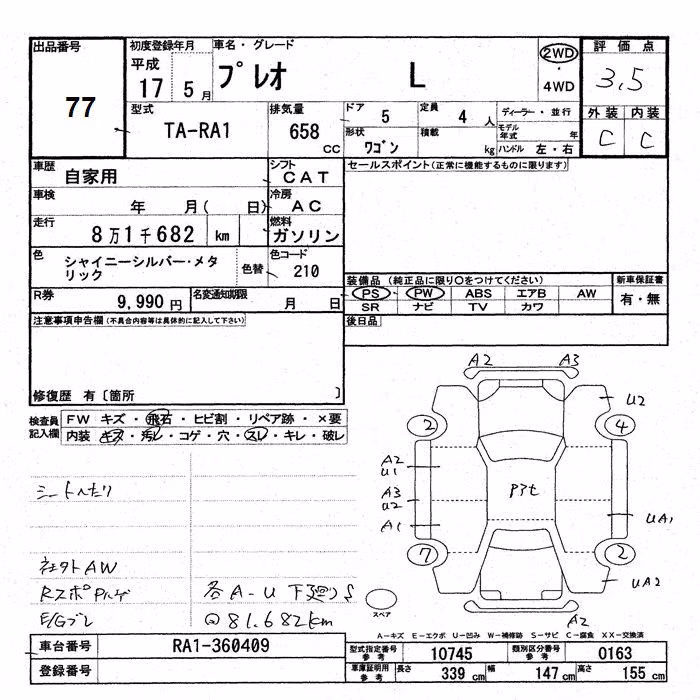 出品番号
77
初度登録年月
平成
17 5月
車名・グレード
プレオ L
2WD
・
4WD
評価点
3,5
外装 内装
C C
型式
TA-RA1
排気量
658 CC
ドア
5
定員
4 人
ディーラー・並行
モデル年式 年
形状
ワゴン
積載
kg
ハンドル 左・右
車歴
自家用
シフト
CAT
セールスポイント(正常に機能するものに限ります)
車検
年 月( 日)
冷房
AC
走行
8万1千682 km
燃料
ガソリン
色
シャイニーシルバー・メタリック
色替
色コード
210
装備品 (純正品に限り○をつけてください)
新車保証書
PS PW ABS エアB AW
SR ナビ TV カワ
有・無
R券
9,990円
名変通知期限
月 日
後日品
注意事項申告欄(不具合内容等は具体的に記入して下さい)
修復歴 有〔箇所 〕
検査員記入欄
FW キズ・飛石・ヒビ割・リペア跡・×要
内装 キズ・汚レ・コゲ・穴・スレ・キレ・破レ
シートヘたり
社外AW
E/Gブレ
各A-U 下廻りS
81.682km
A2 A3
U2
2 4
A2
U1
A3
U2
A1
UA1
7 2
UA2
A2
スペア
A-キズ E-エクボ U-凹み W-補修跡 S-サビ C-腐食 XX-交換済
車台番号
RA1-360409
型式指定番号
参考
10745
類別区分番号
参考
0163
登録番号
車庫証明用
参考
長さ
339 cm
幅
147 cm
高さ
155 cm